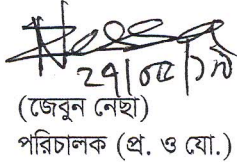 ২৭/০৫/১৯
(জেবুন নেছা)
পরিচালক (প্র. ও যো.)